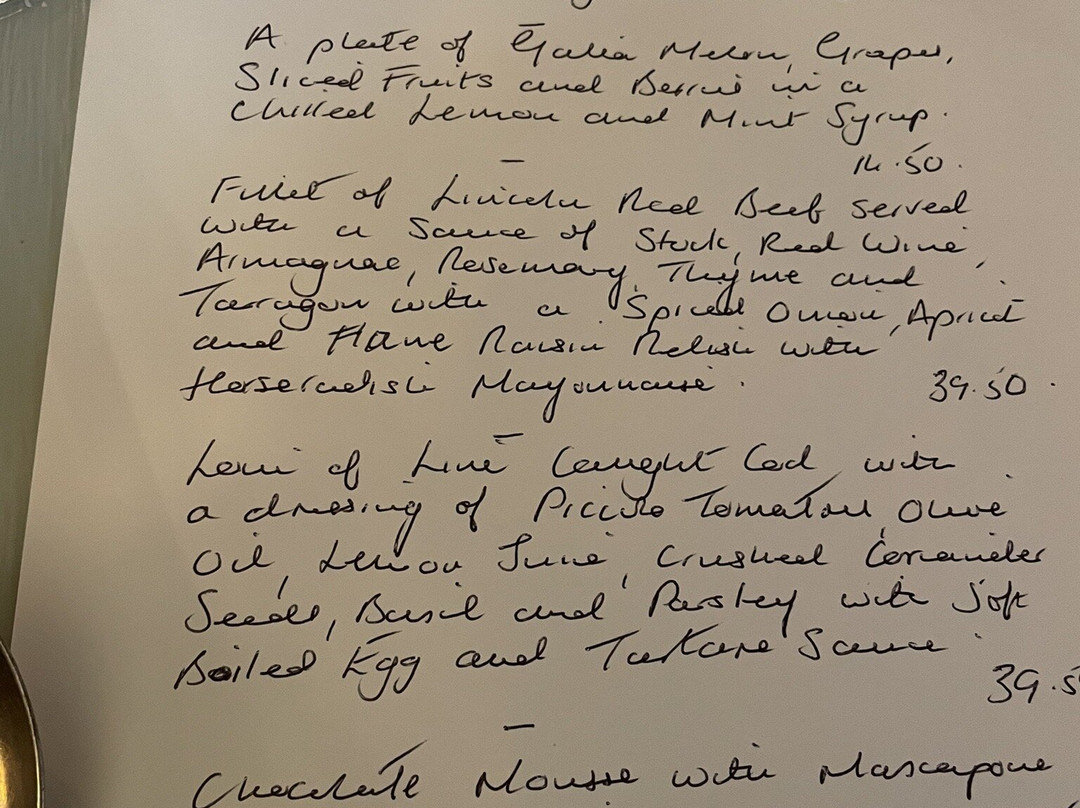 A plate of Galia Melon, Grapes,
Sliced Fruits and Berries in a
Chilled Lemon and Mint Syrup.
14.50.
Fillet of Lincoln Red Beef served
with a Sauce of Stock, Red Wine,
Armagnac, Rosemary, Thyme and
Tarragon with a Spiced Onion, Apricot
and Flame Raisin Relish with
Horseradish Mayonnaise.
39.50.
Loin of Line Caught Cod with
a dressing of Piccolo Tomatoes, Olive
Oil, Lemon Juice, Crushed Coriander
Seeds, Basil and Parsley with Soft
Boiled Egg and Tartare Sauce
39.5
Chocolate Mousse with Mascarpone